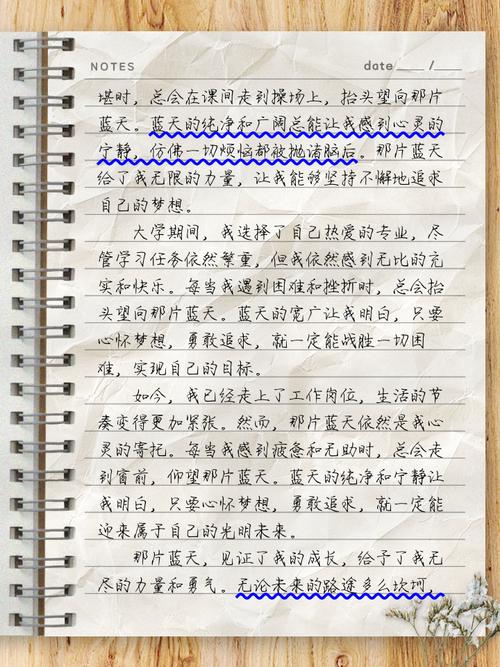 NOTES
date____ /____
堪时，总会在课间走到操场上，抬头望向那片
蓝天。蓝天的纯净和广阔总能让我感到心灵的
宁静，仿佛一切烦恼都被抛诸脑后。那片蓝天
给了我无限的力量，让我能够坚持不懈地追求
自己的梦想。
大学期间，我选择了自己热爱的专业，尽
管学习任务依然繁重，但我依然感到无比的充
实和快乐。每当我遇到困难和挫折时，总会抬
头望向那片蓝天。蓝天的宽广让我明白，只要
心怀梦想，勇敢追求，就一定能战胜一切困
难，实现自己的目标。
如今，我已经走上了工作岗位，生活的节
奏变得更加紧张。然而，那片蓝天依然是我心
灵的寄托。每当我感到疲惫和无助时，总会走
到窗前，仰望那片蓝天。蓝天的纯净和宁静让
我明白，只要心怀梦想，勇敢追求，就一定能
迎来属于自己的光明未来。
那片蓝天，见证了我的成长，给予了我无
尽的力量和勇气。无论未来的路途多么坎坷，